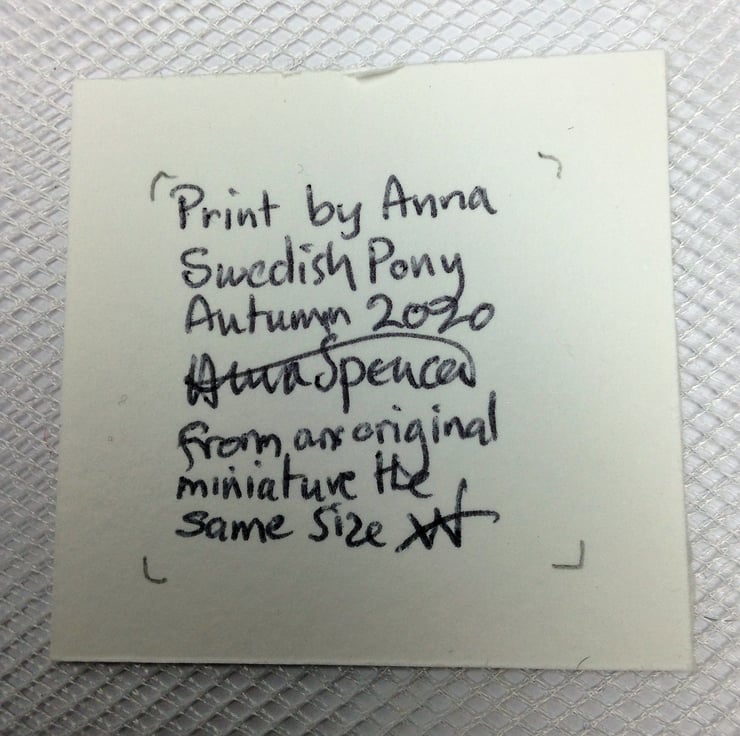 Print by Anna
Swedish Pony
Autumn 2020
Anna Spencer
from an original
miniature the
same size